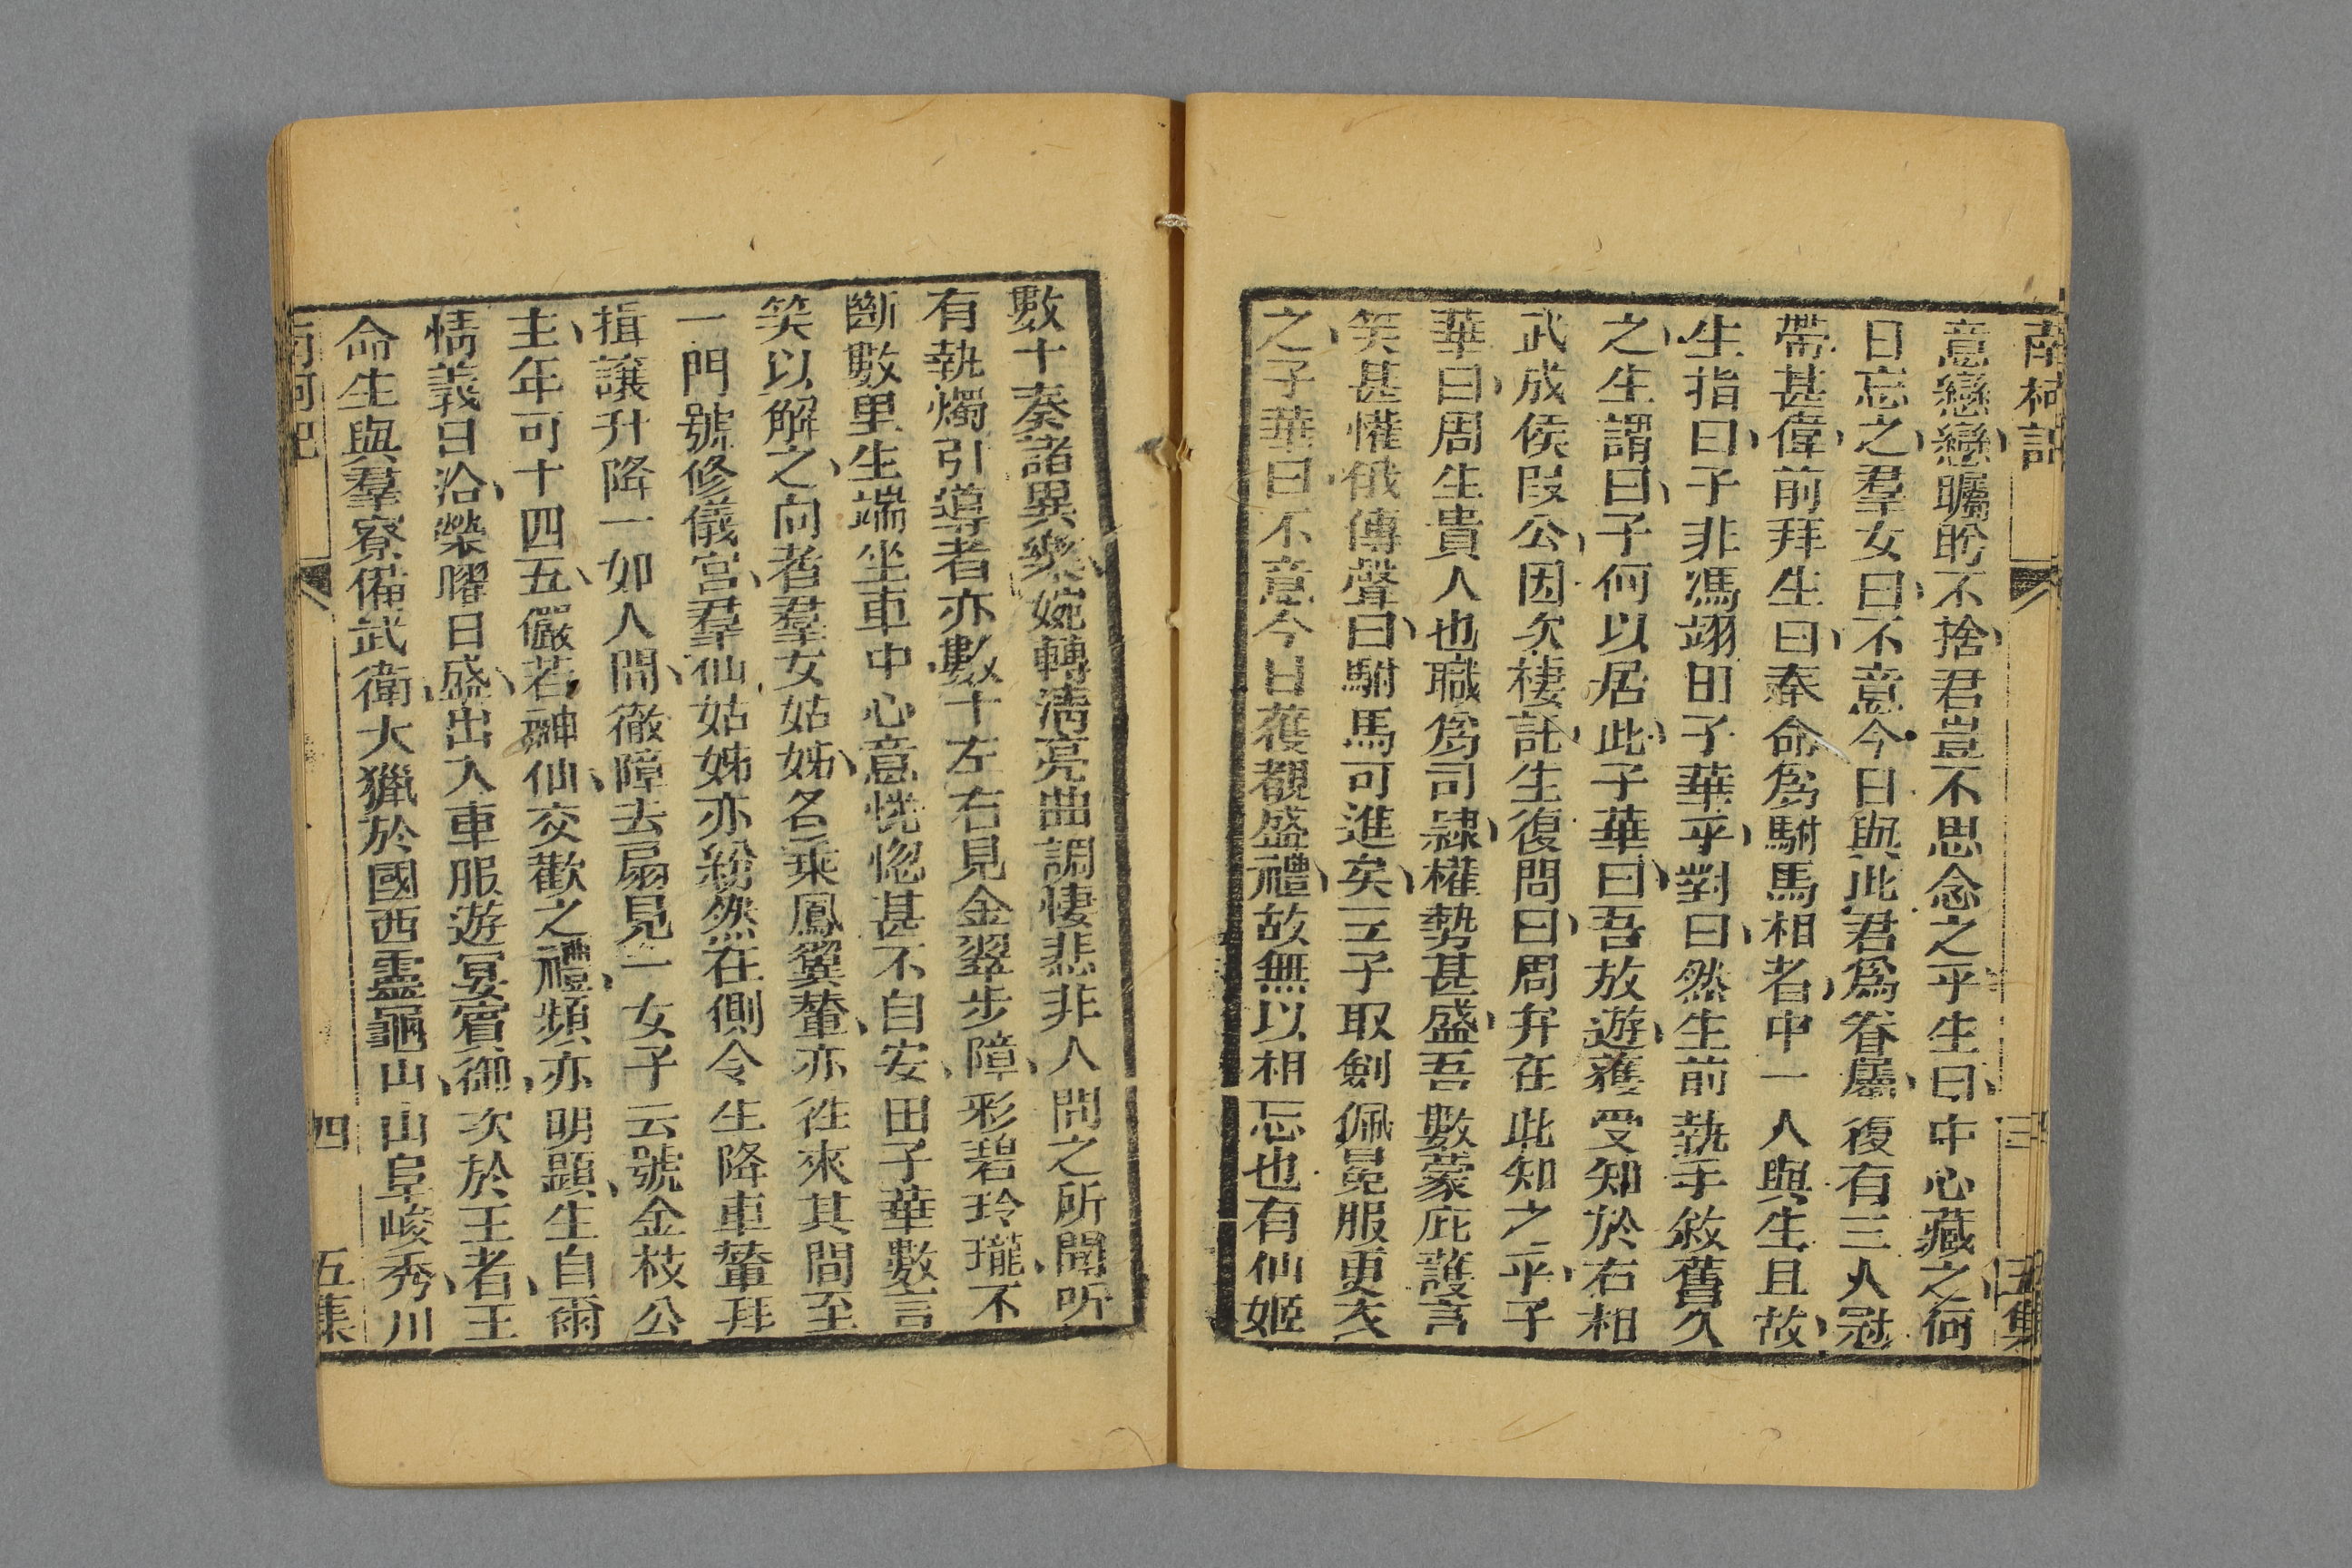 南柯記 三 五集
意戀戀矚盻不捨君豈不思念之乎生曰中心藏之何
日忘之羣女曰不意今日與此君爲眷屬復有三人冠
帶甚偉前拜生曰奉命爲駙馬相者中一人與生且故
生指曰子非馮翊田子華乎對曰然生前執手敘舊久
之生謂曰子何以居此子華曰吾放遊獲受知於右相
武成侯段公因次棲託生復問曰周弁在此知之乎子
華曰周生貴人也職爲司隸權勢甚盛吾數蒙庇護言
笑甚懽俄傳聲曰駙馬可進矣三子取劍佩冕服更衣
之子華曰不意今日獲覩盛禮故無以相忘也有仙姬
數十奏諸異樂婉轉清亮曲調悽悲非人間之所聞听
有執燭引導者亦數十左右見金翠步障彩碧玲瓏不
斷數里生端坐車中心意恍惚甚不自安田子華數言
笑以解之向者羣女姑姊各乘鳳翼輦亦徃來其間至
一門號修儀宮羣仙姑姊亦紛然在側令生降車輦拜
揖讓升降一如人間徹障去扇見一女子云號金枝公
主年可十四五儼若神仙交歡之禮頻亦明顯生自爾
情義日洽榮曜日盛出入車服遊宴賓御次於王者王
命生與羣寮備武衛大獵於國西靈龜山山阜峻秀川
南柯記 四 五集